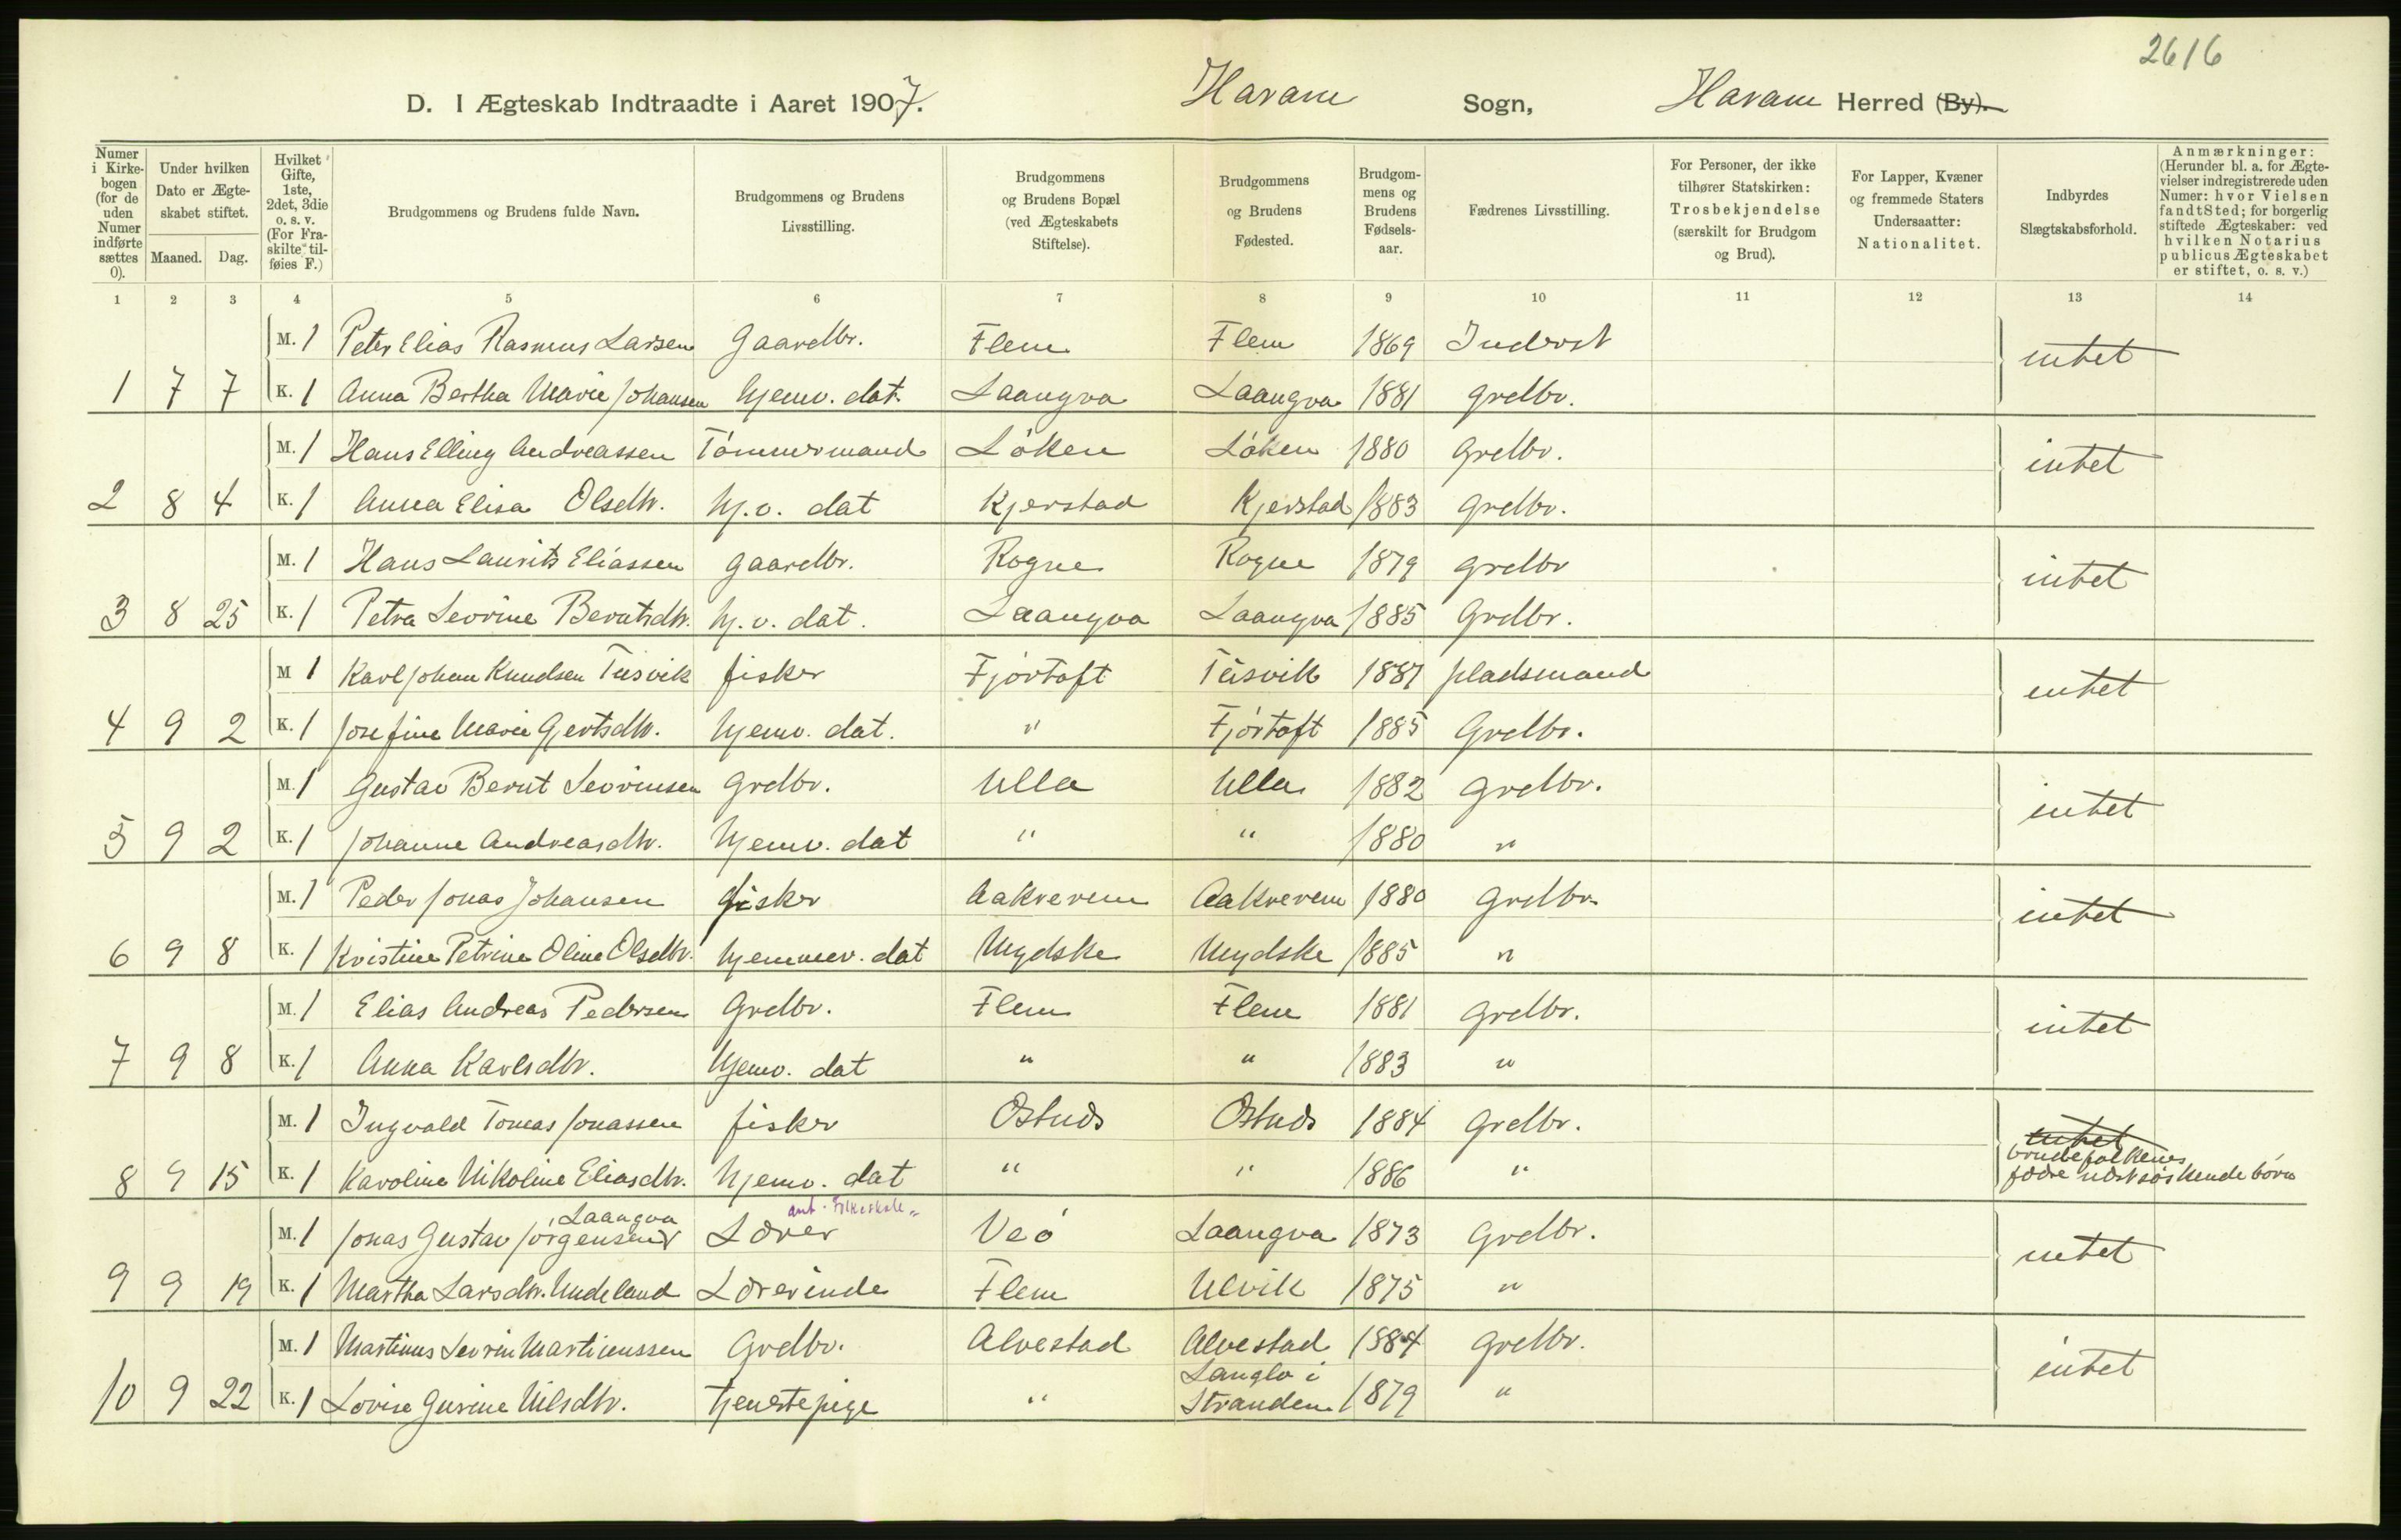 2616
D. I Ægteskab Indtraadte i Aaret 1907. Haram Sogn, Haram Herred (By).
Numer i Kirkebogen (for de uden Numer indførte sættes 0).
Under hvilken Dato er Ægteskabet stiftet.
Maaned. Dag.
Hvilket Gifte, 1ste, 2det, 3die o. s. v. (For Fraskilte tilføies F.)
Brudgommens og Brudens fulde Navn.
Brudgommens og Brudens Livsstilling.
Brudgommens og Brudens Bopæl (ved Ægteskabets Stiftelse).
Brudgommens og Brudens Fødested.
Brudgommens og Brudens Fødselsaar.
Fædrenes Livsstilling.
For Personer, der ikke tilhører Statskirken: Trosbekjendelse (særskilt for Brudgom og Brud).
For Lapper, Kvæner og fremmede Staters Undersaatter: Nationalitet.
Indbyrdes Slægtskabsforhold.
Anmærkninger: (Herunder bl. a. for Ægtevielser indregistrerede uden Numer: hvor Vielsen fandt Sted; for borgerlig stiftede Ægteskaber: ved hvilken Notarius publicus Ægteskabet er stiftet, o. s. v.)
1 2 3 4 5 6 7 8 9 10 11 12 13 14
M. 1 Peter Elias Rasmus Larsen Gaardbr. Flem Flem 1869 Inderst intet
1 7 7 K. 1 Anna Bertha Marie Johansen hjemv. dat. Laangva Laangva 1881 grdbr.
M. 1 Hans Elling Andreassen Tömmermand Löken Löken 1880 Grdbr. intet
2 8 4 K. 1 Anna Elisa Olsdtr. hj.v. dat Kjerstad Kjerstad 1883 Grdbr.
M. 1 Hans Laurits Eliassen gaardbr. Rogne Rogne 1879 grdbr intet
3 8 25 K. 1 Petra Sevrine Berntsdtr. hj.v. dat. Laangva Laangva 1885 Grdbr.
M 1 Karl Johan Knudsen Tusvik fisker Fjörtoft Tusvik 1881 pladsmand intet
4 9 2 K. 1 Josefine Marie Gjertsdtr. hjemv. dat. " Fjörtoft 1885 Grdbr.
M. 1 Gustav Bernt Sevrinsen Grdbr. Ulla Ulla 1882 Grdbr. intet
5 9 2 K. 1 Johanne Andreasdtr. hjemv. dat " " 1880 "
M. 1 Peder Jonas Johansen fisker Aakrerem Aakrerem 1880 Grdbr. intet
6 9 8 K. 1 Kristine Petrine Oline Olsdtr. hjemmev. dat Uydske Uydske 1885 "
M. 1 Elias Andreas Pedersen Grdbr. Flem Flem 1881 Grdbr. intet
7 9 8 K. 1 Anna Karlsdtr. hjemv. dat " " 1883 "
M. 1 Ingvald Tomas Jonassen fisker Ostnds Ostnds 1884 Grdbr. intet
8 9 15 K. 1 Karoline Nikoline Eliasdtr. hjemv. dat " " 1886 " brudefolkenes
födre næstsöskendebörn
Laangva ant. Folkeskole
M. 1 Jonas Gustav Jörgensen Lærer Veö Laangva 1873 Grdbr. intet
9 9 19 K. 1 Martha Larsdtr. Undeland Lærerinde Flem Ulvik 1875 "
M. 1 Martinus Sevrin Martinussen Grdbr. Alvestad Alvestad 1884 Grdbr. intet
Langlo i
10 9 22 K. 1 Lovise Gurine Nilsdtr. tjenestepige " Stranden 1879 "